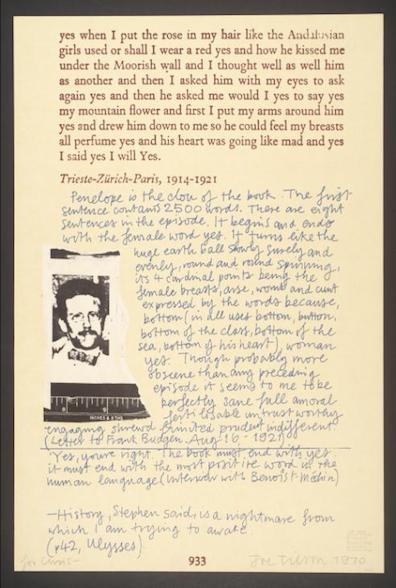 yes when I put the rose in my hair like the Andalusian
girls used or shall I wear a red yes and how he kissed me
under the Moorish wall and I thought well as well him
as another and then I asked him with my eyes to ask
again yes and then he asked me would I yes to say yes
my mountain flower and first I put my arms around him
yes and drew him down to me so he could feel my breasts
all perfume yes and his heart was going like mad and yes
I said yes I will Yes.
Trieste-Zürich-Paris, 1914-1921
Penelope is the clou of the book. The first
sentence contains 2500 words. There are eight
sentences in the episode. It begins and ends
with the female word yes. It turns like the
huge earth ball slowly surely and
evenly, round and round spinning,
its 4 cardinal points being the
female breasts, arse, womb and cunt
expressed by the words because,
bottom (in all uses bottom, button,
bottom of the class, bottom of the
sea, bottom of his heart), woman
yes. Though probably more
obscene than any preceding
episode it seems to me to be
perfectly sane full amoral
fertilisable untrustworthy
INCHES & 8 THS
engaging shrewd limited prudent indifferent
(Letter to Frank Budgen. Aug 16 - 1921)
Yes, you're right. The book must end with yes
it must end with the most positive word in the
human language (Interview with Benoist-Méchin)
—History, Stephen said, is a nightmare from
which I am trying to awake.
(p42, Ulysses)
for Chris-
933
Joe Tilson 1970